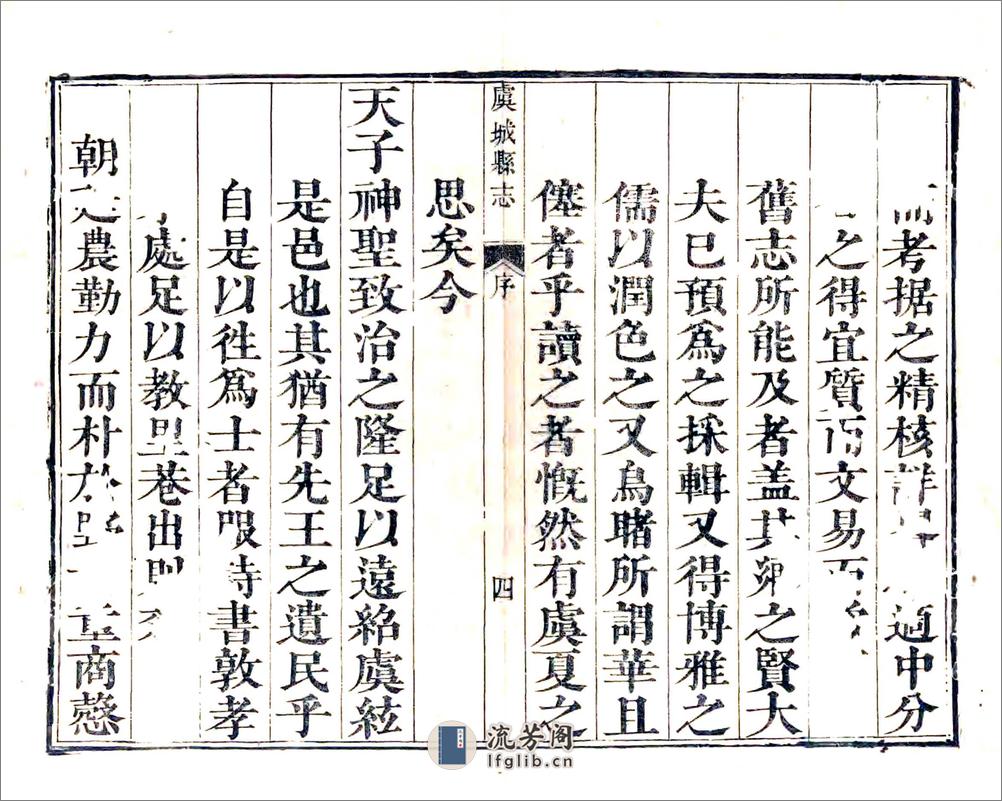 考据之精核詳適中分
之得宜質而文易
舊志所能及者盖其鄉之賢大
夫已預為之採輯又得博雅之
儒以潤色之又烏睹所謂華且
僿者乎讀之者慨然有虞夏之
思矣今
虞城縣志 序 四
天子神聖致治之隆足以遠紹虞絃
是邑也其猶有先王之遺民乎
自是以徃為士者服詩書敦孝
處足以教里巷出
朝之農勤力而朴於重商愨
流芳阁
lfglib.cn